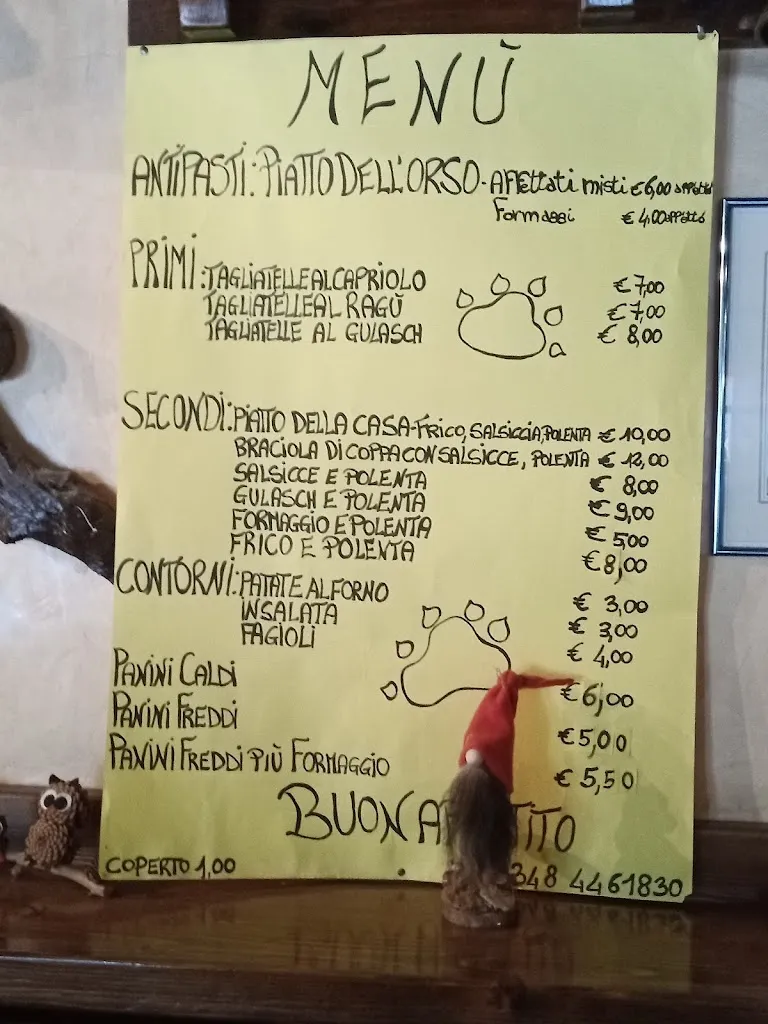 MENÙ
ANTIPASTI: PIATTO DELL'ORSO - AFFETTATI misti € 6,00
Formaggi € 4,00
PRIMI: TAGLIATELLE AL CAPRIOLO € 7,00
TAGLIATELLE AL RAGÙ € 7,00
TAGLIATELLE AL GULASCH € 8,00
SECONDI: PIATTO DELLA CASA - Frico, SALSICCIA, POLENTA € 10,00
BRACIOLA DI COPPA CON SALSICCE, POLENTA € 12,00
SALSICCE E POLENTA € 8,00
GULASCH E POLENTA € 9,00
FORMAGGIO E POLENTA € 5,00
FRICO E POLENTA € 8,00
CONTORNI: PATATE AL FORNO € 3,00
INSALATA € 3,00
FAGIOLI € 4,00
PANINI CALDI € 6,00
PANINI FREDDI € 5,00
PANINI FREDDI PIÙ FORMAGGIO € 5,50
BUON
COPERTO 1,00
348 4461830